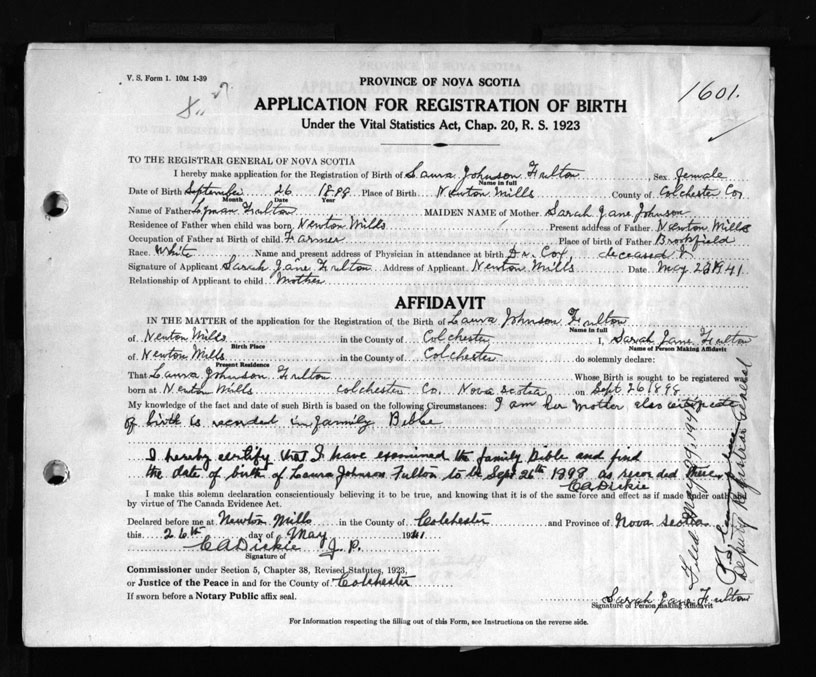 V. S. Form 1. 10M 1-39
PROVINCE OF NOVA SCOTIA
1601.
APPLICATION FOR REGISTRATION OF BIRTH
Under the Vital Statistics Act, Chap. 20, R. S. 1923
TO THE REGISTRAR GENERAL OF NOVA SCOTIA
I hereby make application for the Registration of Birth of Laura Johnson Fulton Sex female
Name in full
Date of Birth September 26 1898 Place of Birth Newton Mills County of Colchester Co
Month Date Year
Name of Father Lyman Fulton MAIDEN NAME of Mother Sarah Jane Johnson
Residence of Father when child was born Newton Mills Present address of Father Newton Mills
Occupation of Father at Birth of child Farmer Place of birth of Father Brookfield
Race White Name and present address of Physician in attendance at birth Dr. Cox, deceased
Signature of Applicant Sarah Jane Fulton Address of Applicant Newton Mills Date May 1941
Relationship of Applicant to child Mother
AFFIDAVIT
IN THE MATTER of the application for the Registration, of the Birth of Laura Johnson Fulton
Name in full
of Newton Mills in the County of Colchester I, Sarah Jane Fulton
Birth Place Name of Person Making Affidavit
of Newton Mills in the County of Colchester do solemnly declare:
Present Residence
That Laura Johnson Fulton Whose Birth is sought to be registered was
born at Newton Mills Colchester Co. Nova Scotia on Sept 26 1898
My knowledge of the fact and date of such Birth is based on the following Circumstances: I am her Mother also certificate
of birth is recorded in family Bible
I hereby certify that I have examined the family Bible and find
the date of birth of Laura Johnson Fulton to be Sept 26th 1898 as recorded there
C A Dickie
I make this solemn declaration conscientiously believing it to be true, and knowing that it is of the same force and effect as if made under oath and
by virtue of The Canada Evidence Act.
Declared before me at Newton Mills in the County of Colchester and Province of Nova Scotia
this 26th day of May 1941
C A Dickie J. P.
Signature of
Commissioner under Section 5, Chapter 38, Revised Statutes, 1923,
or Justice of the Peace in and for the County of Colchester
If sworn before a Notary Public affix seal.
Sarah Jane Fulton
Signature of Person making Affidavit
For Information respecting the filling out of this Form, see Instructions on the reverse side.
Filed May 29, 194
Deputy Registrar General